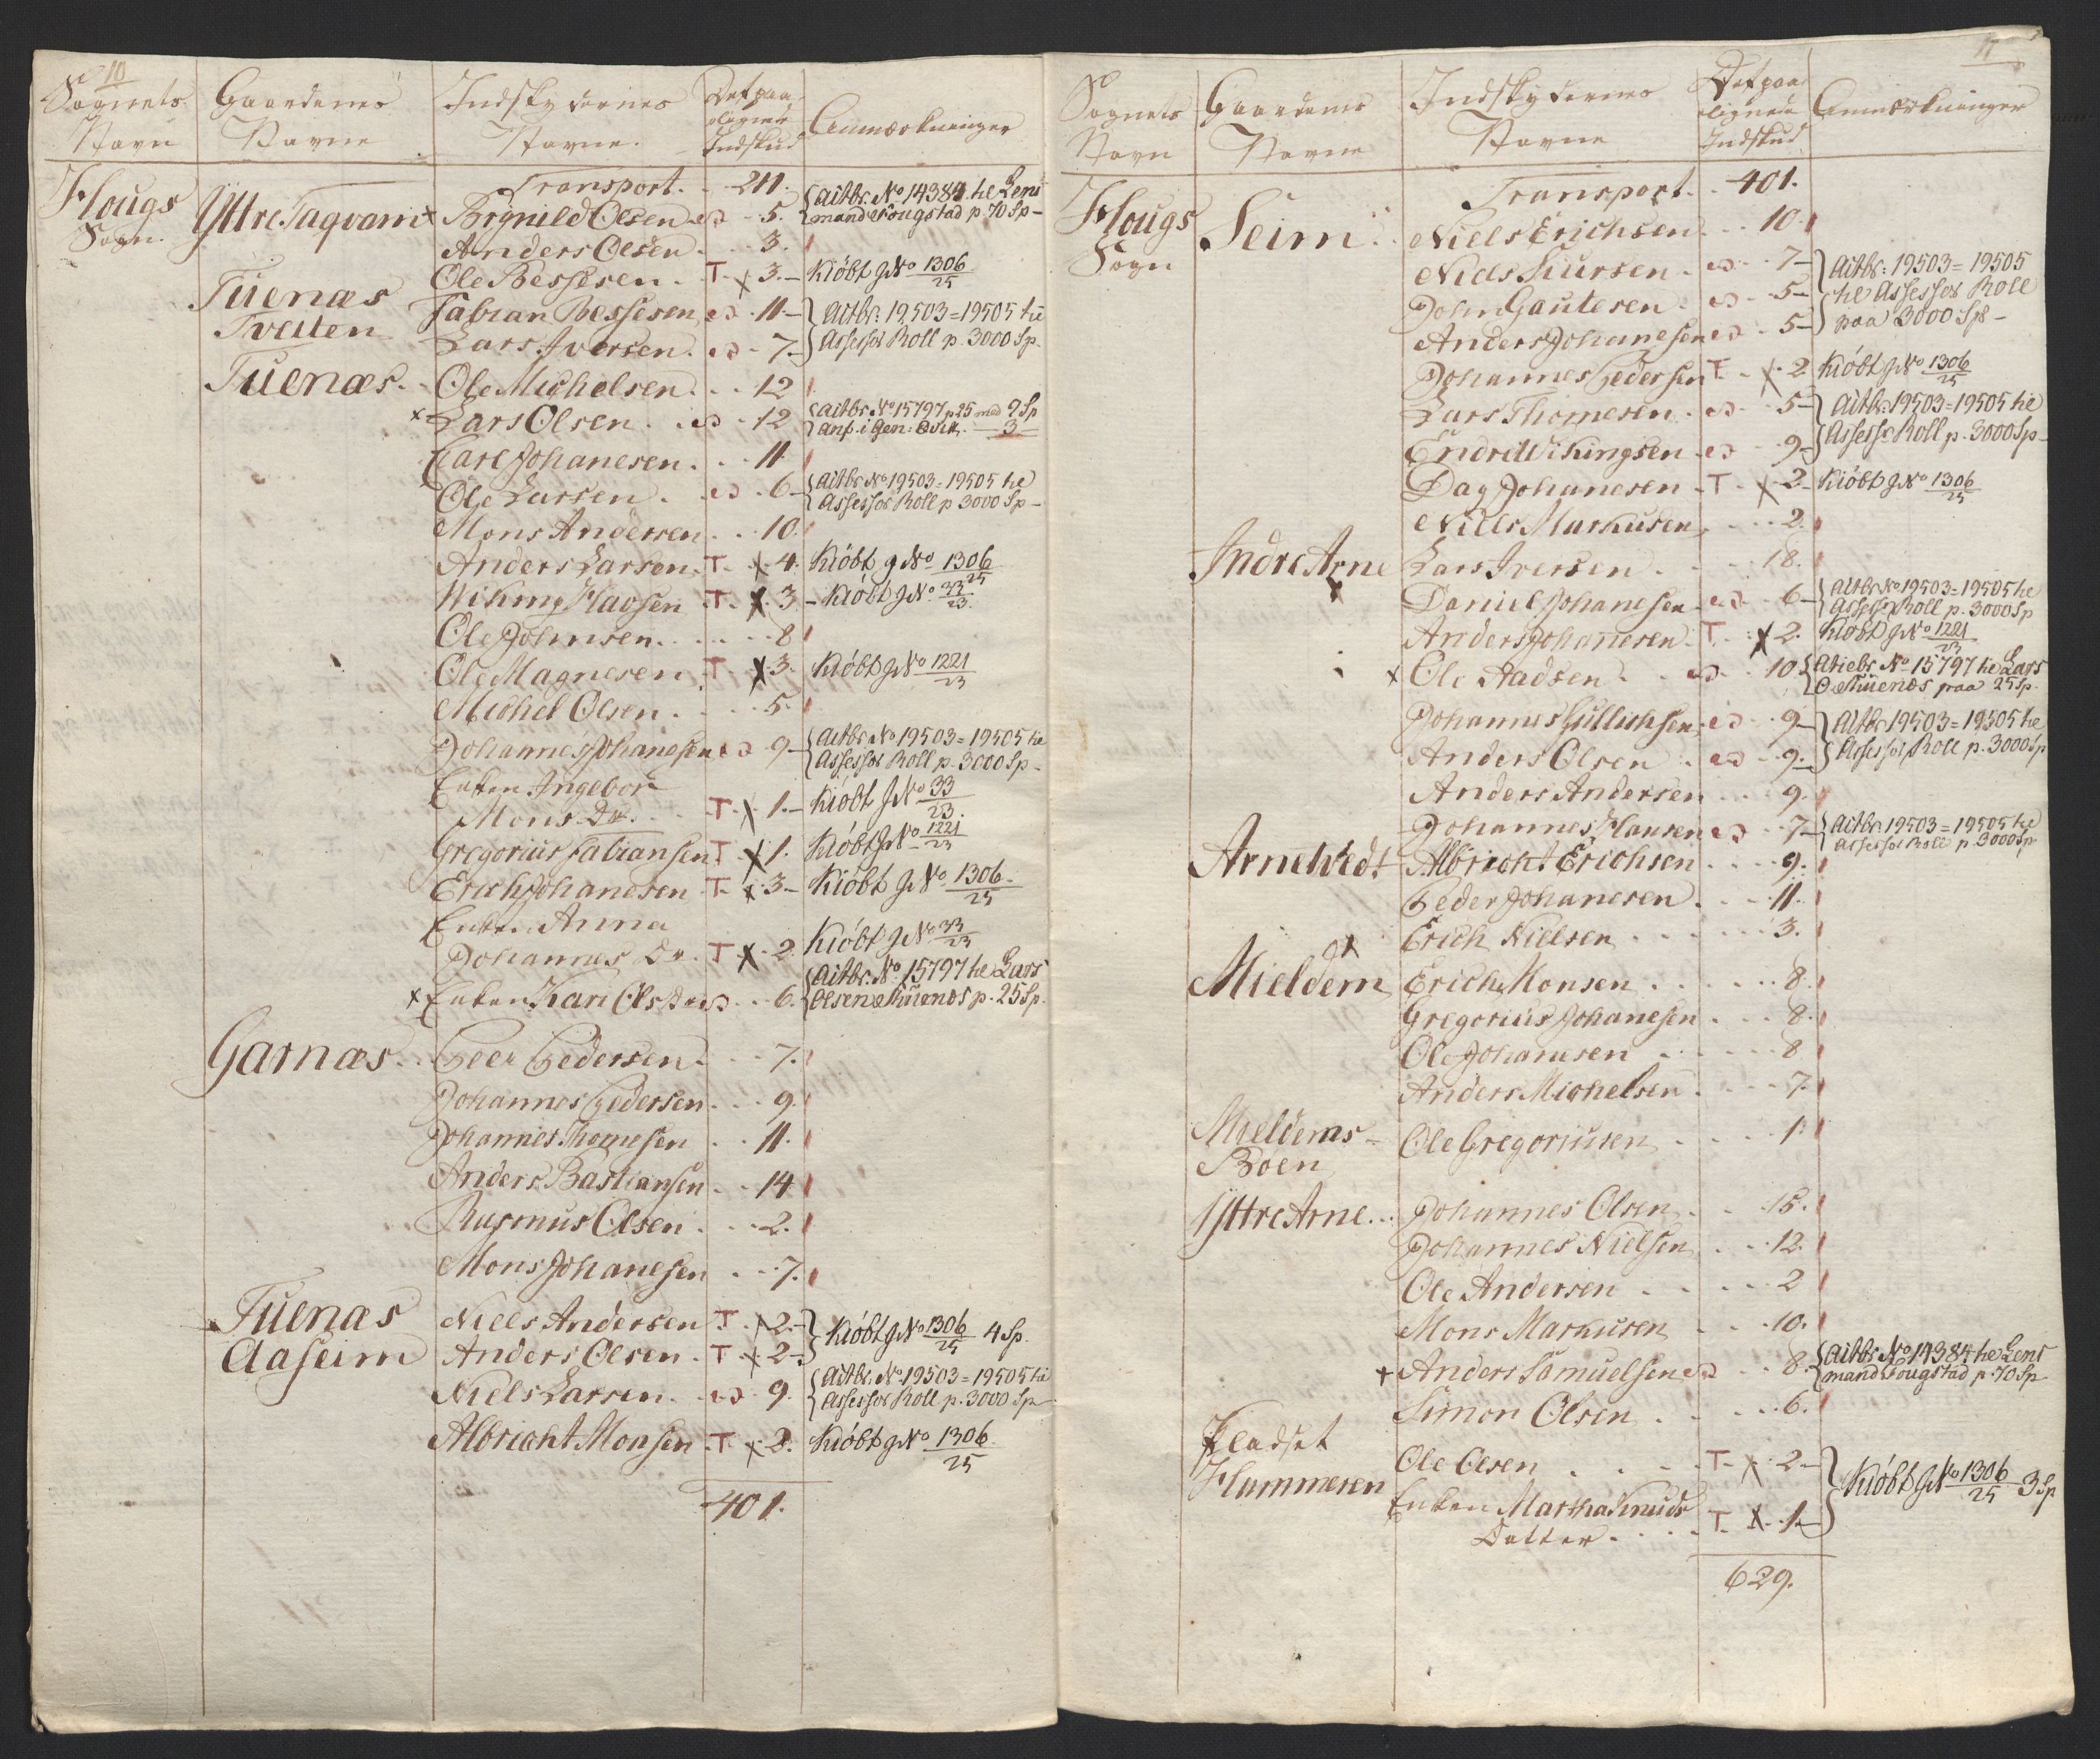 10
Sognets Navn
Gaardenes Navne
Indskydernes Navne.
Det paalignede Indskud
Anmærkninger
Hougs Sogn.
Transport. 211.
Yttre Taqvam x Brÿnild Olsen 5. Actbr. No 14384 he Lens
mand Fougstad p. 70 Sp
Anders Olsen 3.
Tuenæs Ole Bessesen. T x 3. Kiöbt g No 1306/25
Tveiten Fabian Bessesen 11. Actbr. 19503=19505 he
Lars Iversen. 7. Assessor Roll p. 3000 Sp.
Tuenæs. Ole Michelsen. 12
x Lars Olsen. 12 Actbr No 15797 p 25 med 9 Sp
anf. i Gen: 3
Carl Johanesen. 11
Ole Larsen. 6 Actbr No 19503=19505 he
Assessor Roll p 3000 Sp
Mons Andersen 10.
Anders Larsen. T x 4. Kiöbt g No 1306/25
Wiking Havsen T x 3 Kiöbt g No 33/23
Ole Johnsen. 8
Ole Magnesen T x 3. Kiöbt g No 1221/23
Michel Olsen. 5
Johannes Johanesen 9 Actbr No 19503=19505 he
Assessor Roll p. 3000 Sp
Enken Ingebor
Mons Dr. T x 1. Kiöbt g No 33/23.
Gregorius Fabiansen T x 1. Kiöbt g No 1221/23
Erich Johanesen T x 3 Kiöbt g No 1306/25
Enken Anna
Johannes Dr. T x 2. Kiöbt g No 33/23
x Enken Kari Ols Dr 6. Actbr. No 15797 he Lars
Olsen Tuenæs p. 25 Sp.
Garnæs Peer Pedersen. 7.
Johannes Pedersen 9.
Johannes Thomesen 11.
Anders Bastiansen 14
Rasmus Olsen 2.
Mons Johanesen 7.
Tuenæs Niels Andersen T x 2. Kiöbt g No 1306/25 4 Sp.
Aaseim Anders Olsen. T x 2
Niels Larsen. 9. Actbr. No 19503=19505 he
Assessor Roll p. 3000 Sp
Albricht Monsen T x 2. Kiöbt g No 1306/25
401.
11
Sognets Navn
Gaardenes Navne
Indskydernes Navne
Det paalignede Indskud
Anmærkninger
Hougs Sogn
Transport. 401.
Seim Niels Erichsen 10.
Niels Siursen 7 Actbr: 19503=19505
John Gautesen 5 he Assessor Roll
Anders Johanesen 5 paa 3000 Sp
Johannes Pedersen T x 2 Kiöbt g No 1306/25
Lars Thomesen 5 Actbr. 19503=19505 he
Endre Wikingsen 9 Assessor Roll p. 3000 Sp
Dag Johanesen T x 2 Kiöbt g No 1306/25
Niels Markusen 2.
Indre Arne Lars Iversen 18.
Daniel Johanesen 6 Actbr No 19503=19505 he
Assessor Roll p. 3000 Sp
Anders Johanesen T x 2. Kiöbt g No 1221/23
x Ole Aadsen 10. Actbr No 15797 he Lars
O Tuenæs paa 25 Sp.
Johannes Gullichsen 9 Actbr 19503=19505 he
Anders Olsen 9. Assessor Roll p. 3000 Sp
Anders Andersen 9.
Johannes Hansen 7 Actbr. 19503=19505 he
Assessor Roll p. 3000 Sp
Arnetvedt Albricht Erichsen 9.
Peder Johanesen 11.
Erich Nielsen 3.
Mieldem Erich Monsen 8.
Gregorius Johanesen 8.
Ole Johanesen 8
Anders Michelsen 7.
Mieldems-
Boen Ole Gregoriusen 1
Yttre Arne Johannes Olsen 15.
Johannes Nielsen 12.
Ole Andersen 2
Mons Markusen 10.
x Anders Samuelsen 8. Actbr No 14384 he Lens
mand Fougstad p. 70 Sp
Simon Olsen 6.
Pladset
Hammeren Ole Olsen T x 2 Kiöbt g No 1306/25 3 Sp
Enken Martha Knuds
Datter T x 1
629.